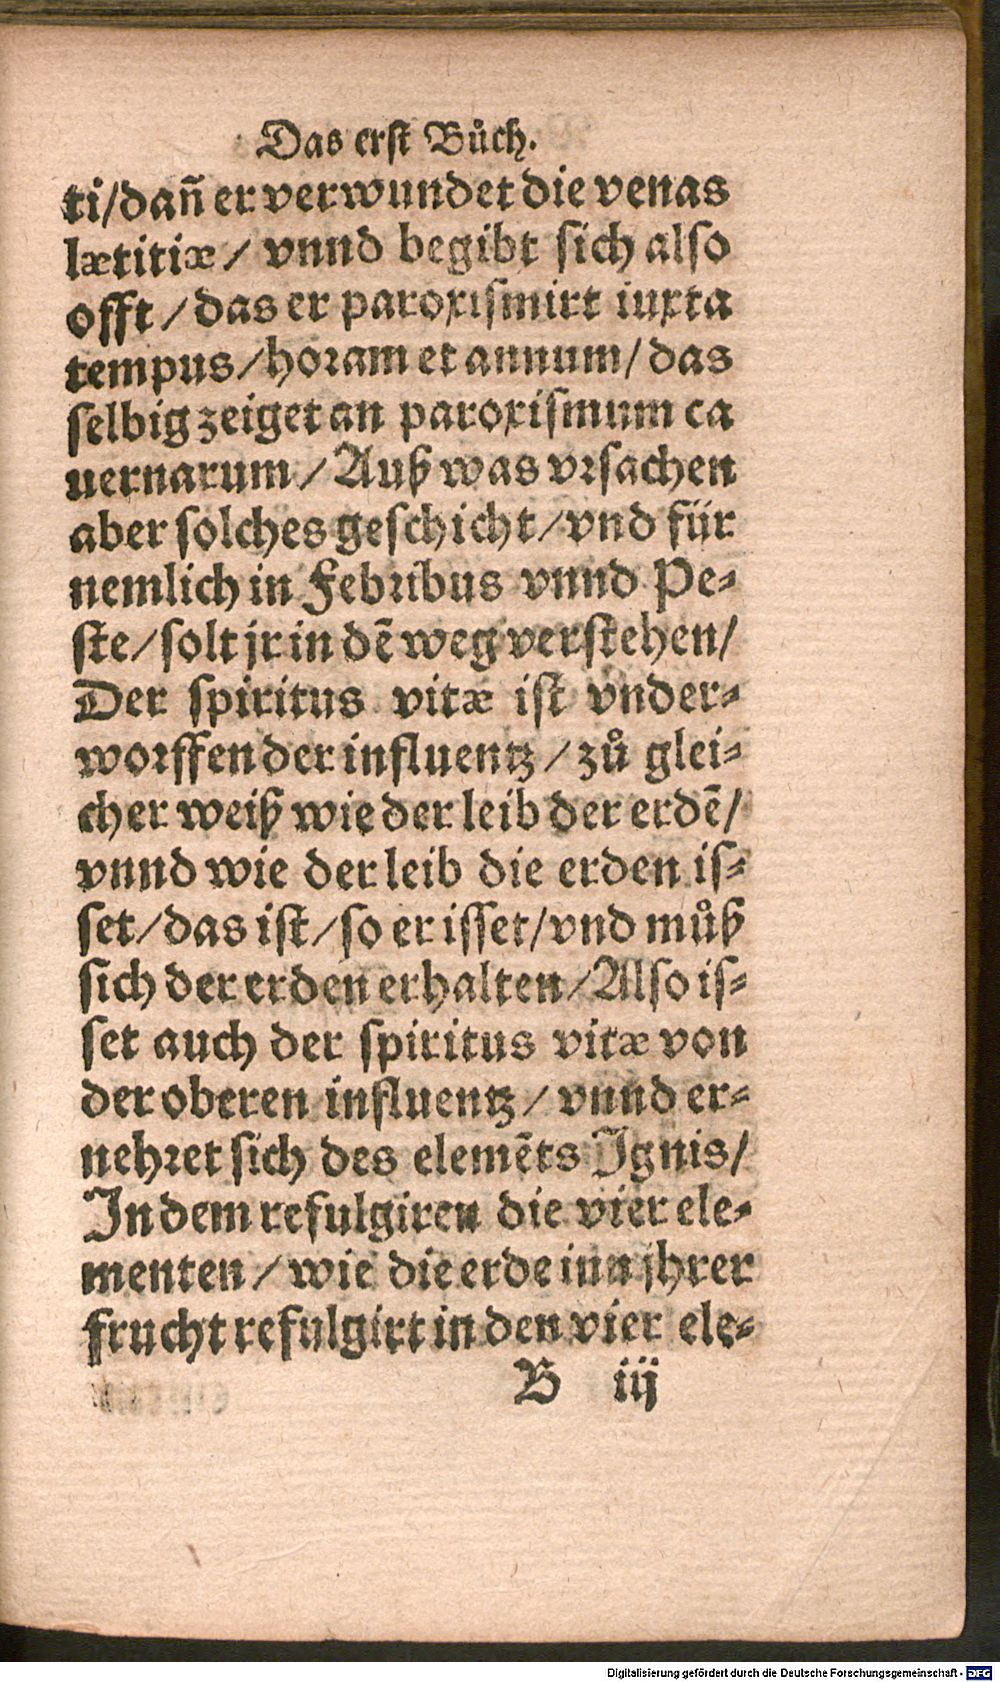 Das erst Bůch.
ti/dañ er verwundet die venas
lætitiæ/ vnnd begibt sich also
offt/das er paroxismirt iuxta
tempus/horam et annum/das
selbig zeiget an paroxismum ca
uernarum/Auß was vrsachen
aber solches geschicht/vnd für
nemlich in Febribus vnnd Pe⸗
ste/solt jr in dẽ weg verstehen/
Der spiritus vitæ ist vnder⸗
worffen der influentz/zů glei⸗
cher weiß wie der leib der erdẽ/
vnnd wie der leib die erden is⸗
set/das ist/so er isset/vnd můß
sich der erden erhalten/Also is⸗
set auch der spiritus vitæ von
der oberen influentz/vnnd er⸗
nehret sich des elemẽts Ignis/
In dem refulgiren die vier ele⸗
menten/wie die erde inn jhrer
frucht refulgirt in den vier ele⸗
B iij
Digitalisierung gefördert durch die Deutsche Forschungsgemeinschaft - DFG